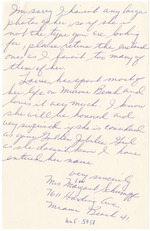 I'm sorry I haven't any large
photos of her, so if she is
not the type you are looking
for, please return the enclosed
one, as I haven't too many of
them of her.
has spent most of
her life on Miami Beach and
loves it very much. I know
she will be honored and
very surprised if she is considered
as your Golden Jubilee Girl
as she doesn't know I have
entered her name
Very sincerely
Mrs Margaret
Harding Ave
Miami Beach 41.